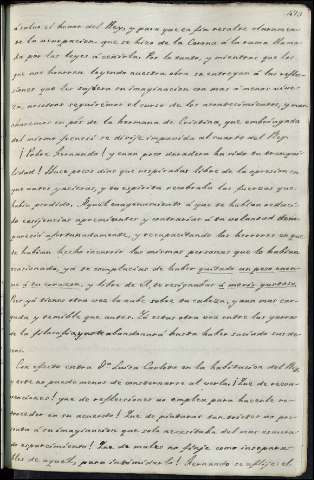 á salvo el honor del Rey, y para que en fin resalte el
de la usurpacion que se hizo de la Corona á la rama llama-
da por las leyes á ceñirla. Por lo tanto, y mientras que los
que nos honren leyendo nuestra obra se entregan á las refle-
xiones que les sugiera su imaginacion con mas ó menos vive-
za, nosotros seguiremos el curso de los acontecimientos, y
en pós de la hermana de Cristina, que
del mismo se dirije impavida al cuarto del Rey.
¡Pobre Fernando! y cuan poco duradera ha sido tu tranqui-
lidad! Hace pocos dias que respirabas libre de la opresion en
que antes yacieras, y tu espíritu recobraba las fuerzas que
habia perdido. Aquel magenamiento á que se habian
exigencias apremiantes y contrarias á tu voluntad desa-
pareció afortunadamente, y recapacitando los horrores en que
se habian hecho incurrir las mismas personas que lo habian
ocasionado, ya te complacias de haber quitado un peso enor-
me á tu corazon, y libre de él, te resignabas á morir gustoso.
Pero ya tienes otra vez la nube sobre tu cabeza, y aun mas car-
gada y temible que antes. Ya estás otra vez entre las garras
de la filosofía que no te abandonará hasta haber saciado sus de-
seos.
Con efecto entra Dª Luisa Carlota en la habitacion del Rey,
y este no puede menos de consternarse al verla. ¡Que de recon-
venciones! que de reflecciones no emplea para hacerle re-
troceder en su acuerdo! Que de pinturas tan tristes no pre-
senta á su imaginacion que solo necesitaba del mas
do esparcimiento! Que de males no finje como insepara-
bles de aquel, para intimidarlo! Fernando se aflije; el